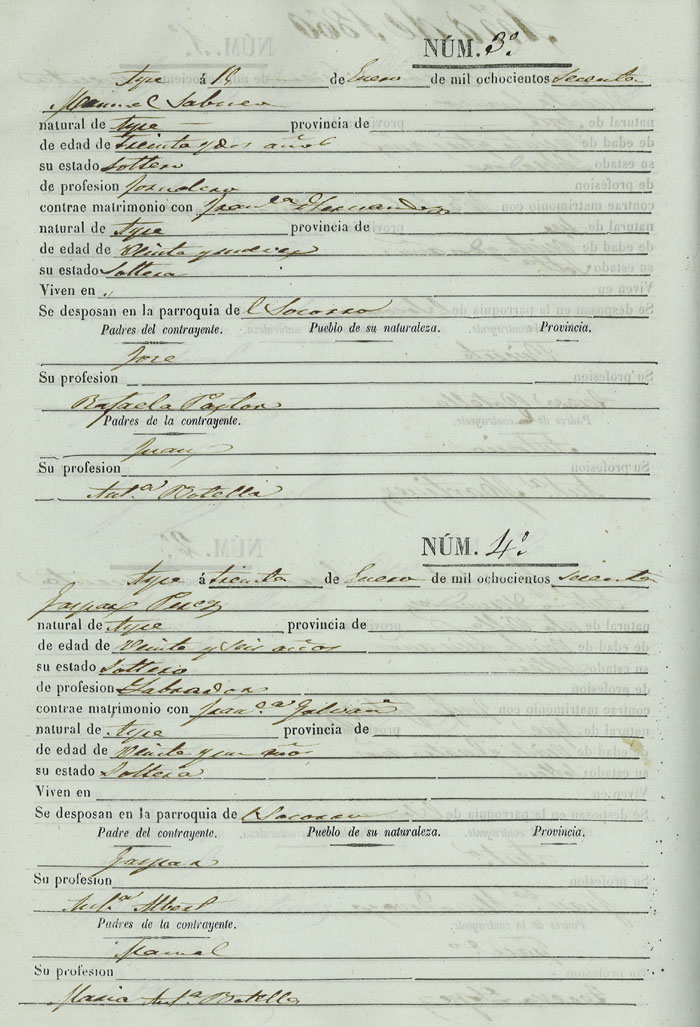 NÚM. 3º
Aspe á 18 de Enero de mil ochocientos sesenta
Manuel Sabuco
natural de Aspe provincia de
de edad de treinta y dos años
su estado Soltero
de profesion Jornalero
contrae matrimonio con Fran.ca Hernandez
natural de Aspe provincia de
de edad de Veinte y nueve
su estado Soltera
Viven en
Se desposan en la parroquia de l Socorro
Padres del contrayente. Pueblo de su naturaleza. Provincia.
Jose
Su profesion
Rafaela Pastor
Padres de la contrayente.
Juan
Su profesion
Ant.a Botella
NÚM. 4º
Aspe á treinta de Enero de mil ochocientos sesenta
Gaspar
natural de Aspe provincia de
de edad de Veinte y seis años
su estado Soltero
de profesion Labrador
contrae matrimonio con Fran.ca Galvañ
natural de Aspe provincia de
de edad de Veinte y un año
su estado Soltera
Viven en
Se desposan en la parroquia de l Socorro
Padre del contrayente. Pueblo de su naturaleza. Provincia.
Gaspar
Su profesion
Ant.a Albert
Padres de la contrayente.
Manuel
Su profesion
Maria Ant.a Botella